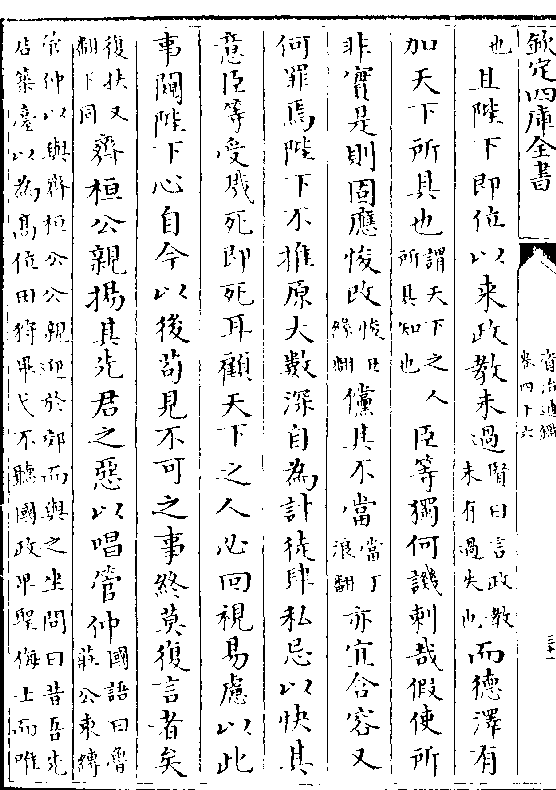 欽定四庫全書
資治通鑑
卷四十六
也且陛下即位以來政教未過賢曰言政教
未有過失也而德澤有
加天下所具也謂天下之人
所具知也臣等獨何譏刺哉假使所
非實是則固應悛改悛丑
緣翻儻其不當當丁
浪翻亦宜含容又
何罪焉陛下不推原大數深自為計徒肆私忌以快其
意臣等受戮死即死耳顧天下之人必回視易慮以此
事闚陛下心自今以後茍見不可之事終莫復言者矣
復扶又
翻下同齊桓公親揚其先君之惡以唱管仲國語曰魯
莊公束縛
管仲以與齊桓公公親迎於郊而與之坐問曰昔吾先
君築臺以為高位田狩畢弋不聽國政卑聖侮士而唯